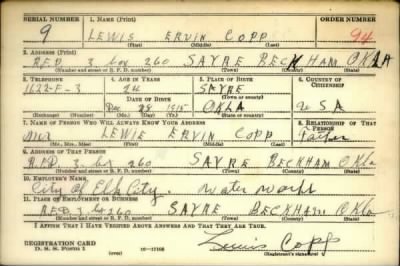 SERIAL NUMBER 1. NAME (Print) ORDER NUMBER
9 LEWIS ERVIN COPP 94
(First) (Middle) (Last)
2. ADDRESS (Print)
RFD 3 box 260 SAYRE BECKHAM OKLA
(Number and street or R. F. D. number) (Town) (County) (State)
3. TELEPHONE 4. AGE IN YEARS 5. PLACE OF BIRTH 6. COUNTRY OF CITIZENSHIP
1622-F-3 24 SAYRE
DATE OF BIRTH (Town or county)
Dec 28 1915 OKLA USA
(Exchange) (Number) (Mo.) (Day) (Yr.) (State or country)
7. NAME OF PERSON WHO WILL ALWAYS KNOW YOUR ADDRESS 8. RELATIONSHIP OF THAT PERSON
Mr LEWIE ERVIN COPP Father
(Mr., Mrs., Miss) (First) (Middle) (Last)
9. ADDRESS OF THAT PERSON
RFD 3 bx 260 SAYRE BECKHAM Okla
(Number and street or R. F. D. number) (Town) (County) (State)
10. EMPLOYER'S NAME
City of Elk City. water works
11. PLACE OF EMPLOYMENT OR BUSINESS
RFD 3 bx 260 SAYRE BECKHAM Okla
(Number and street or R. F. D. number) (Town) (County) (State)
I AFFIRM THAT I HAVE VERIFIED ABOVE ANSWERS AND THAT THEY ARE TRUE.
REGISTRATION CARD
D. S. S. Form 1 16-17105 Lewis Copp
(Registrant's signature)